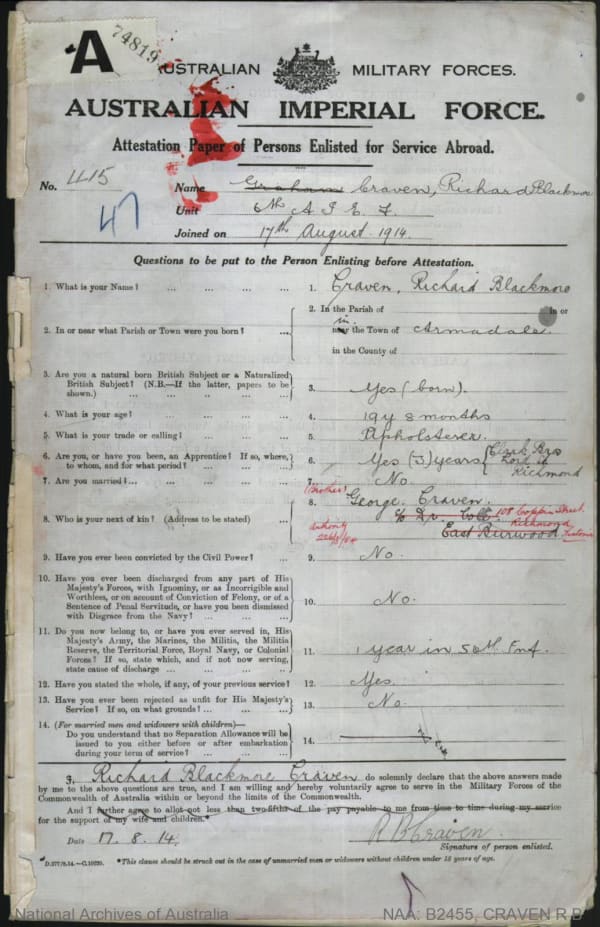 A 74819
AUSTRALIAN MILITARY FORCES.
AUSTRALIAN IMPERIAL FORCE.
Attestation Paper of Persons Enlisted for Service Abroad.
No. 415
47
Name Graham Craven, Richard Blackmore
Unit 6th A I E F
Joined on 17th August 1914.
Questions to be put to the Person Enlisting before Attestation.
1. What is your Name? ... ... ... ... 1. Craven, Richard Blackmore
2. In or near what Parish or Town were you born? ... 2. In the Parish of in or
in near the Town of Armadale
in the County of
3. Are you a natural born British Subject or a Naturalized
British Subject? (N.B.—If the latter, papers to be
shown.) ... ... ... ... 3. Yes (born).
4. What is your age? ... ... ... ... 4. 19y 8 months
5. What is your trade or calling? ... ... ... 5. Upholsterer.
6. Are you, or have you been, an Apprentice? If so, where,
to whom, and for what period? ... ... ... 6. Yes (3) years { Clark Bros
Richmond
7. Are you married? ... ... ... ... 7. No.
(Brother)
8. Who is your next of kin? (Address to be stated) ... 8. George Craven.
c/o Dr. Cole 108 Coppin Street
Richmond
East Burwood Victoria
9. Have you ever been convicted by the Civil Power? ... 9. No.
10. Have you ever been discharged from any part of His
Majesty's Forces, with Ignominy, or as Incorrigible and
Worthless, or on account of Conviction of Felony, or of a
Sentence of Penal Servitude, or have you been dismissed
with Disgrace from the Navy? ... ... ... 10. No.
11. Do you now belong to, or have you ever served in, His
Majesty's Army, the Marines, the Militia, the Militia
Reserve, the Territorial Force, Royal Navy, or Colonial
Forces? If so, state which, and if not now serving,
state cause of discharge ... ... ... ... 11. 1 year in 50th Inf.
12. Have you stated the whole, if any, of your previous service? 12. Yes.
13. Have you ever been rejected as unfit for His Majesty's
Service? If so, on what grounds? ... ... ... 13. No.
14. (For married men and widowers with children)—
Do you understand that no Separation Allowance will be
issued to you either before or after embarkation
during your term of service? ... ... ... 14.
I, Richard Blackmore Craven do solemnly declare that the above answers made
by me to the above questions are true, and I am willing and hereby voluntarily agree to serve in the Military Forces of the
Commonwealth of Australia within or beyond the limits of the Commonwealth.
And I further agree to allot not less than two-fifths of the pay payable to me from time to time during my service
for the support of my wife and children.*
Date 17. 8. 14. R B Craven.
Signature of person enlisted.
D.277/8.14.—C.10220. *This clause should be struck out in the case of unmarried men or widowers without children under 18 years of age.
National Archives of Australia NAA: B2455, CRAVEN R B